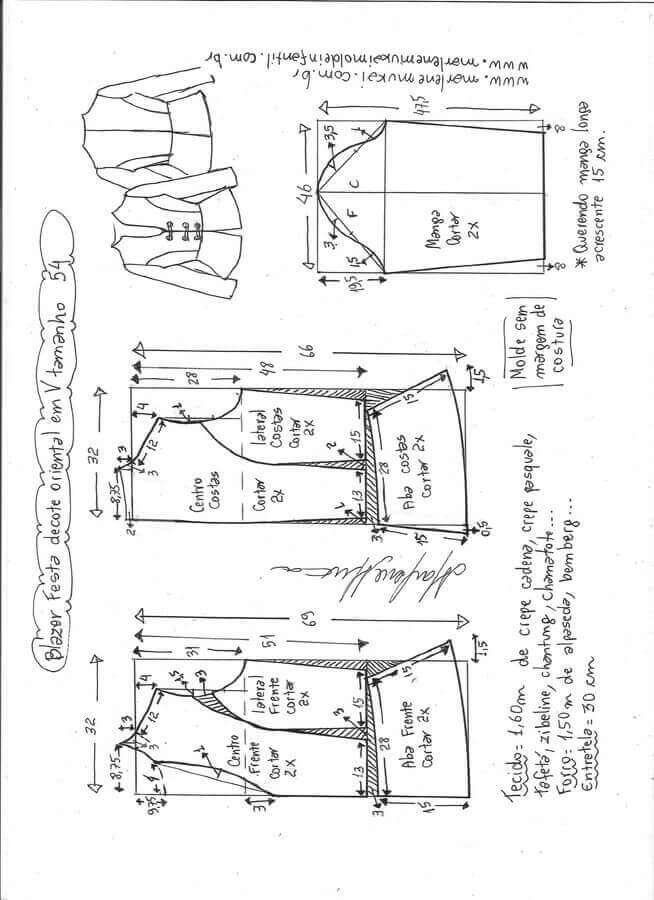 Blazer Festa decote oriental em V tamanho 54
www.marlenemukai.com.br
www.marlenemukaimoldeinfantil.com.br
32
8,75
3
4
12
3
9,75
4
2
1,5
3
31
51
69
Centro
Frente
cortar
2x
lateral
Frente
cortar
2x
3
13
3
15
3
28
15
15
1,5
Aba Frente
Cortar 2x
32
8,75
2
3
4
12
3
2
28
48
66
Centro
Costas
Cortar
2x
lateral
Costas
Cortar
2x
2
13
2
15
3
28
15
15
0,5
1,5
Aba Costas
Cortar 2x
46
47,5
19,5
3,5
1
C
F
3
1,5
Manga
Cortar
2x
8
8
* Querendo manga longa
acrescente 15 cm.
Molde sem
margem de
costura
Tecido = 1,60m de crepe cadena, crepe pasquale,
tafetá, zibeline, chantung, chamatote...
Forro = 1,50 m de alpaseda, bemberg...
Entretela = 30 cm